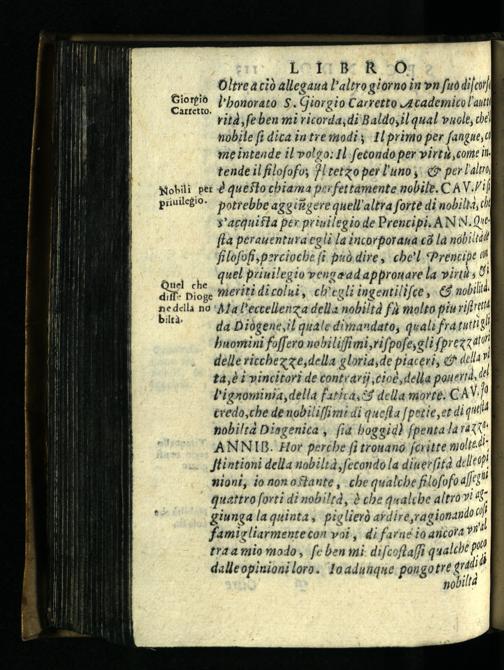 LIBRO
Oltre a ciò allegaua l'altro giorno in vn suo discorso
Giorgio
Carretto.
l'honorato S. Giorgio Carretto Academico l'autto
rità, se ben mi ricorda, di Baldo, il qual vuole, che'l
nobile si dica in tre modi; Il primo per sangue, co
me intende il volgo: Il secondo per virtù, come in
tende il filosofo; Il tetzo per l'uno, & per l'altro,
Nobili per
priuilegio.
è questo chiama perfettamente nobile. CAV. Vi si
potrebbe aggiũgere quell'altra sorte di nobiltà, che
s'acquista per priuilegio de Prencipi. ANN. Que-
sta perauentura egli la incorporaua cõ la nobiltà de
filosofi, percioche si può dire, che'l Prencipe con
quel priuilegio venga ad approuare la virtù, & i
Quel che
disse Dioge
ne della no
biltà.
meriti di colui, ch'egli ingentilisce, & nobilita.
Ma l'eccellenza della nobiltà fù molto piu ristretta
da Diogene, il quale dimandato, quali fra tutti gli
huomini fossero nobilissimi, rispose, gli sprezzatori
delle ricchezze, della gloria, de piaceri, & della vi
ta, è i vincitori de contrarij, cioè, della pouertà, del
l'ignominia, della fatica, & della morte. CAV. Io
credo, che de nobilissimi di questa spetie, et di questa
nobiltà Diogenica, sia hoggidì spenta la razza.
ANNIB. Hor perche si trouano scritte molte di-
stintioni della nobiltà, secondo la diuersità delle opi
nioni, io non ostante, che qualche filosofo assegni
quattro sorti di nobiltà, è che qualche altro vi ag-
giunga la quinta, piglierò ardire, ragionando così
famigliarmente con voi, di farne io ancora vn'al
tra a mio modo, se ben mi discostassi qualche poco
dalle opinioni loro. Io adunque pongo tre gradi di
nobiltà